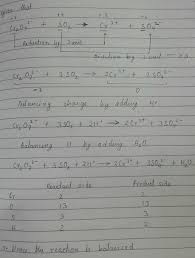 given that
+6 +4 +3 +6
Cr₂O₇²⁻ + SO₂ → Cr³⁺ + SO₄²⁻
Reduction by 3 unit
Oxidation by 2 unit
Cr₂O₇²⁻ + 3SO₂ → 2Cr³⁺ + 3SO₄²⁻
-2 0
Balancing charge by adding H⁺
Cr₂O₇²⁻ + 3SO₂ + 2H⁺ → 2Cr³⁺ + 3SO₄²⁻
Balancing O by adding H₂O
Cr₂O₇²⁻ + 3SO₂ + 2H⁺ → 2Cr³⁺ + 3SO₄²⁻ + H₂O
Reactant side Product side
Cr 2 2
O 13 13
S 3 3
H 2 2
Hence the reaction is balanced